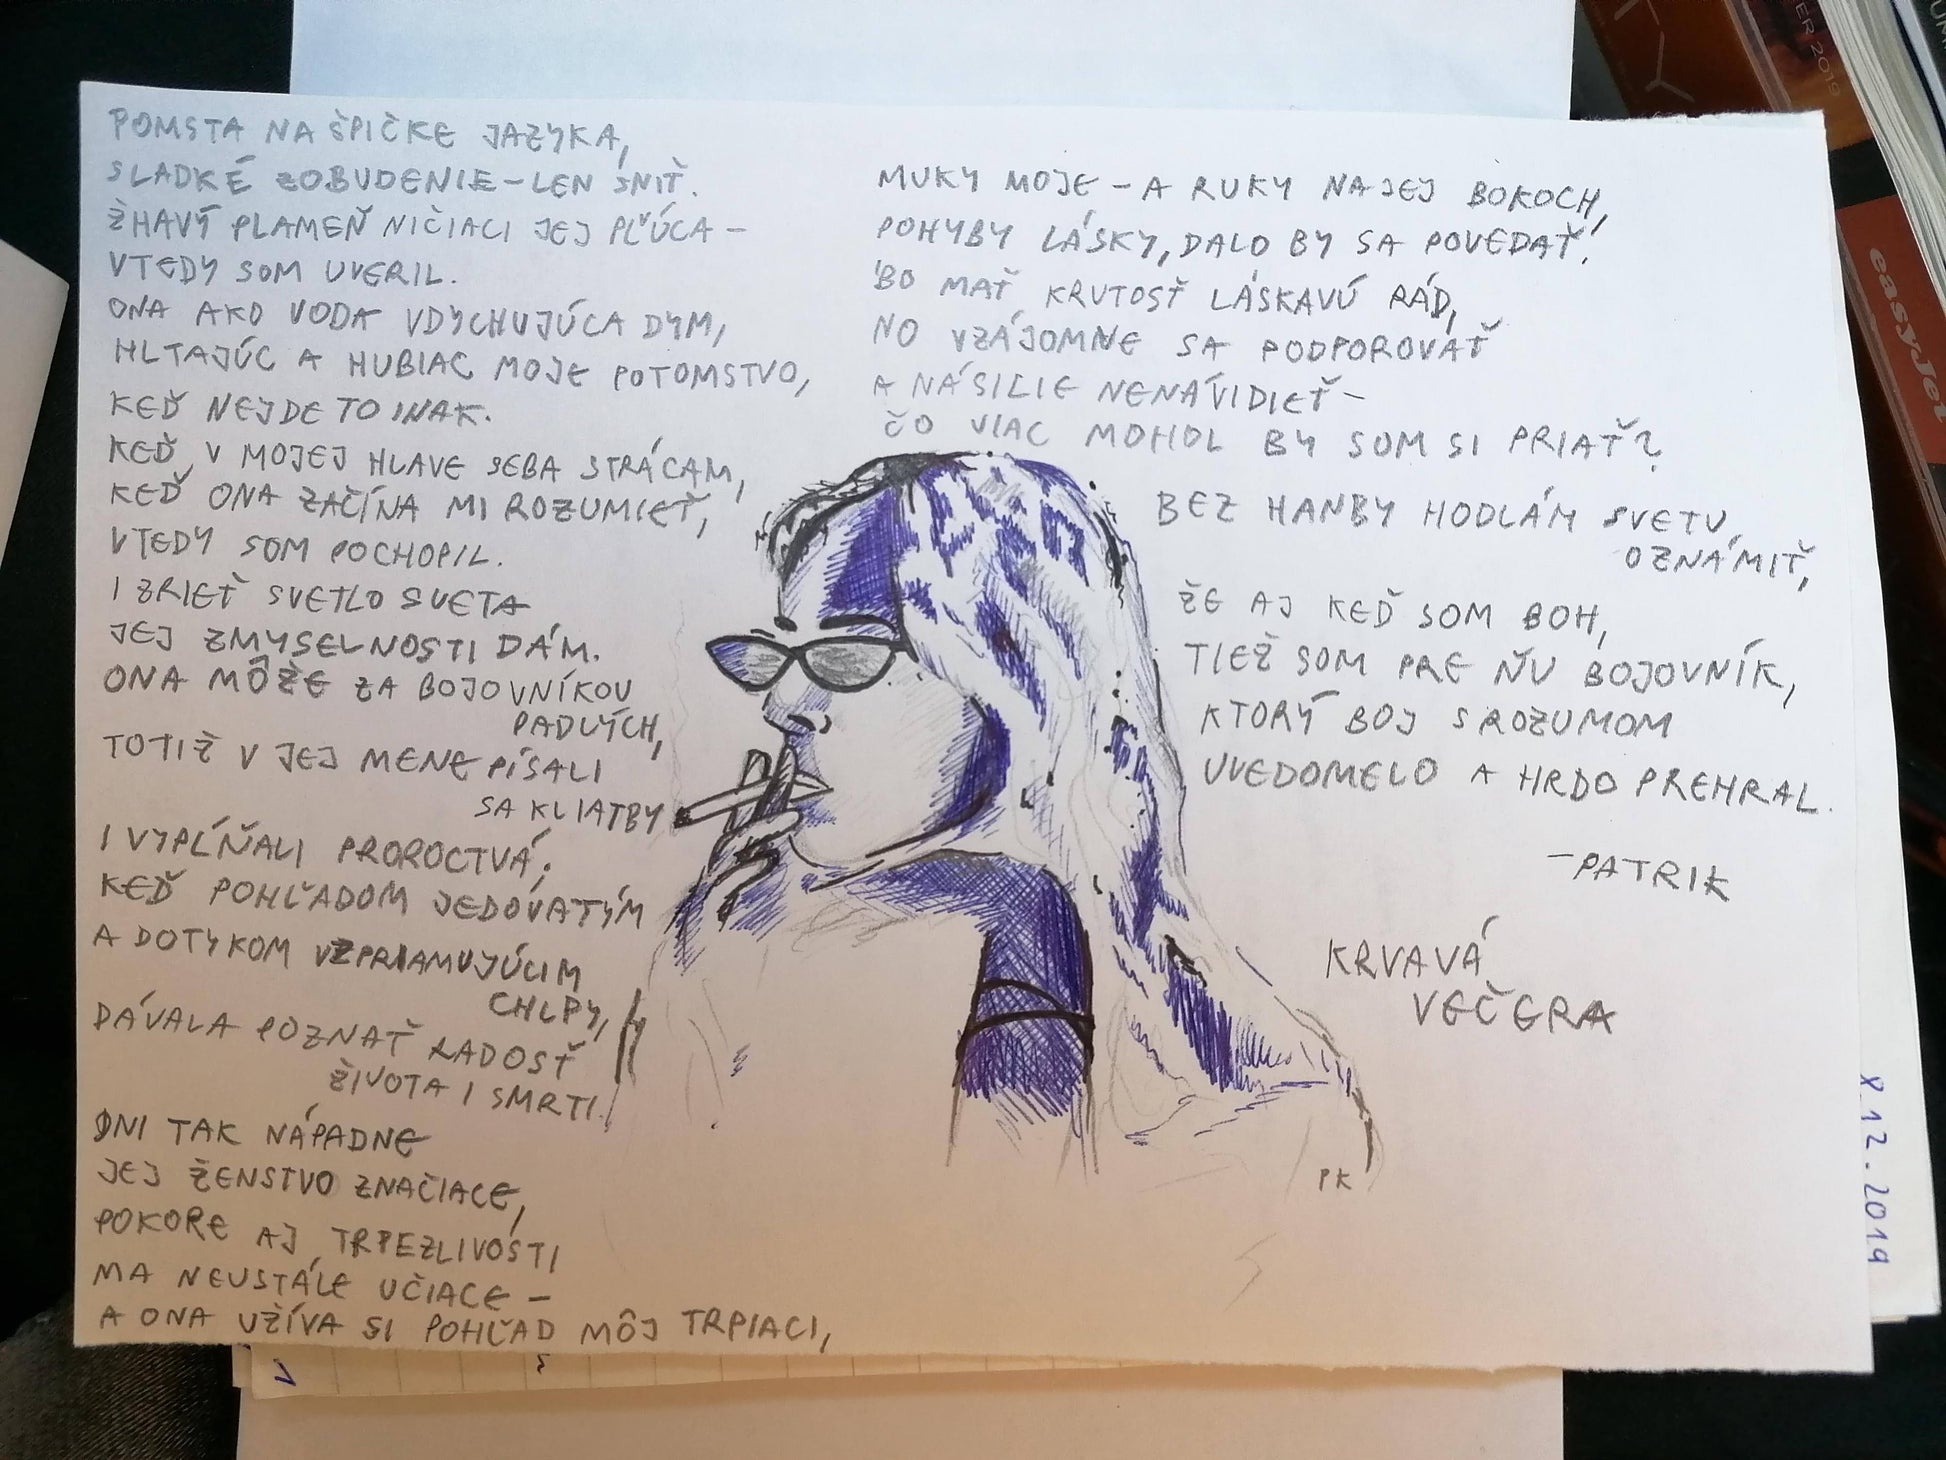 POMSTA NA ŠPIČKE JAZYKA,
SLADKÉ ZOBUDENIE – LEN SNIŤ.
ŽHAVÝ PLAMEŇ NIČIACI JEJ PĽÚCA –
VTEDY SOM UVERIL.
ONA AKO VODA VDYCHUJÚCA DYM,
HLTAJÚC A HUBIAC MOJE POTOMSTVO,
KEĎ NEJDE TO INAK.
KEĎ V MOJEJ HLAVE SEBA STRÁCAM,
KEĎ ONA ZAČÍNA MI ROZUMIEŤ,
VTEDY SOM POCHOPIL.
I ZRIEŤ SVETLO SVETA
JEJ ZMYSELNOSTI DÁM.
ONA MÔŽE ZA BOJOVNÍKOV
PADLÝCH,
TOTIŽ V JEJ MENE PÍSALI
SA KLIATBY
I VYPĹŇALI PROROCTVÁ.
KEĎ POHĽADOM JEDOVATÝM
A DOTYKOM VZPRIAMUJÚCIM
CHLPY,
DÁVALA POZNAŤ RADOSŤ
ŽIVOTA I SMRTI.
DNI TAK NÁPADNE
JEJ ŽENSTVO ZNAČIACE,
POKORE AJ TRPEZLIVOSTI
MA NEUSTÁLE UČIACE –
A ONA UŽÍVA SI POHĽAD MÔJ TRPIACI,
MUKY MOJE – A RUKY NA JEJ BOKOCH,
POHYBY LÁSKY, DALO BY SA POVEDAŤ.
BO MAŤ KRUTOSŤ LÁSKAVÚ RÁD,
NO VZÁJOMNE SA PODPOROVAŤ
A NÁSILIE NENÁVIDIEŤ –
ČO VIAC MOHOL BY SOM SI PRIAŤ?
BEZ HANBY HODLÁM SVETU
OZNÁMIŤ,
ŽE AJ KEĎ SOM BOH,
TIEŽ SOM PRE ŇU BOJOVNÍK,
KTORÝ BOJ S ROZUMOM
UVEDOMELO A HRDO PREHRAL.
– PATRIK
KRVAVÁ
VEČERA
PK
8.12.2019
easyJet